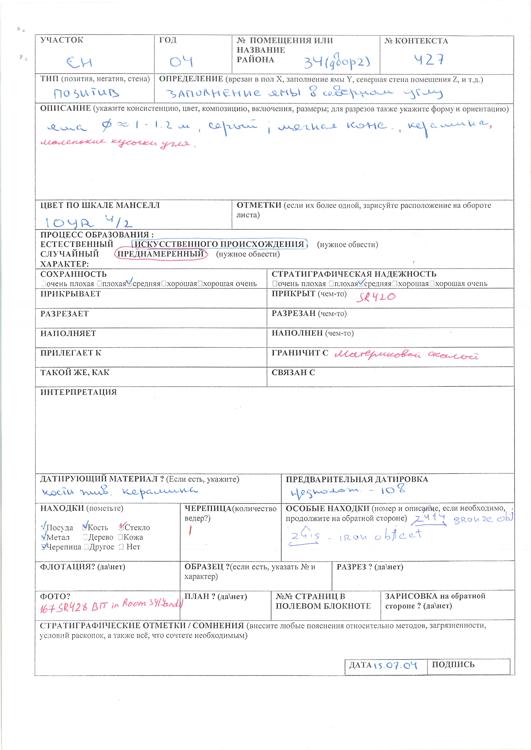 УЧАСТОК
ЄН
ГОД
04
№ ПОМЕЩЕНИЯ ИЛИ НАЗВАНИЕ РАЙОНА
34 (двор 2)
№ КОНТЕКСТА
427
ТИП (позитив, негатив, стена)
ПОЗИТИВ
ОПРЕДЕЛЕНИЕ (врезан в пол X, заполнение ямы Y, северная стена помещения Z, и т.д.)
заполнение ямы в северном углу
ОПИСАНИЕ (укажите консистенцию, цвет, композицию, включения, размеры; для разрезов также укажите форму и ориентацию)
яма ϕ ≈ 1 - 1.2 м, серый, мягкая конс., керамика,
маленькие кусочки угля.
ЦВЕТ ПО ШКАЛЕ МАНСЕЛЛ
10YR 4/2
ОТМЕТКИ (если их более одной, зарисуйте расположение на обороте листа)
ПРОЦЕСС ОБРАЗОВАНИЯ :
ЕСТЕСТВЕННЫЙ ИСКУССТВЕННОГО ПРОИСХОЖДЕНИЯ (нужное обвести)
СЛУЧАЙНЫЙ ПРЕДНАМЕРЕННЫЙ (нужное обвести)
ХАРАКТЕР:
СОХРАННОСТЬ
□очень плохая □плохая ✓средняя □хорошая □хорошая очень
СТРАТИГРАФИЧЕСКАЯ НАДЕЖНОСТЬ
□очень плохая □плохая ✓средняя □хорошая □хорошая очень
ПРИКРЫВАЕТ
ПРИКРЫТ (чем-то) SR420
РАЗРЕЗАЕТ
РАЗРЕЗАН (чем-то)
НАПОЛНЯЕТ
НАПОЛНЕН (чем-то)
ПРИЛЕГАЕТ К
ГРАНИЧИТ С материковой скалой
ТАКОЙ ЖЕ, КАК
СВЯЗАН С
ИНТЕРПРЕТАЦИЯ
ДАТИРУЮЩИЙ МАТЕРИАЛ ? (Если есть, укажите)
кости жив. керамика
ПРЕДВАРИТЕЛЬНАЯ ДАТИРОВКА
- 108
НАХОДКИ (пометьте)
✓Посуда ✓Кость ✓Стекло
✓Метал □Дерево □Кожа
✓Черепица □Другое □ Нет
ЧЕРЕПИЦА(количество ведер?)
1
ОСОБЫЕ НАХОДКИ (номер и описание, если необходимо, продолжите на обратной стороне) 2414 BRONZE obj
- IRON object
ФЛОТАЦИЯ? (да\нет)
ОБРАЗЕЦ ?(если есть, указать № и характер)
РАЗРЕЗ ? (да\нет)
ФОТО?
SR428 BIT in Room 34
ПЛАН ? (да\нет)
№№ СТРАНИЦ В ПОЛЕВОМ БЛОКНОТЕ
ЗАРИСОВКА на обратной стороне ? (да\нет)
СТРАТИГРАФИЧЕСКИЕ ОТМЕТКИ / СОМНЕНИЯ (внесите любые пояснения относительно методов, загрязненности, условий раскопок, а также всё, что сочтете необходимым)
ДАТА 15.07.04
ПОДПИСЬ